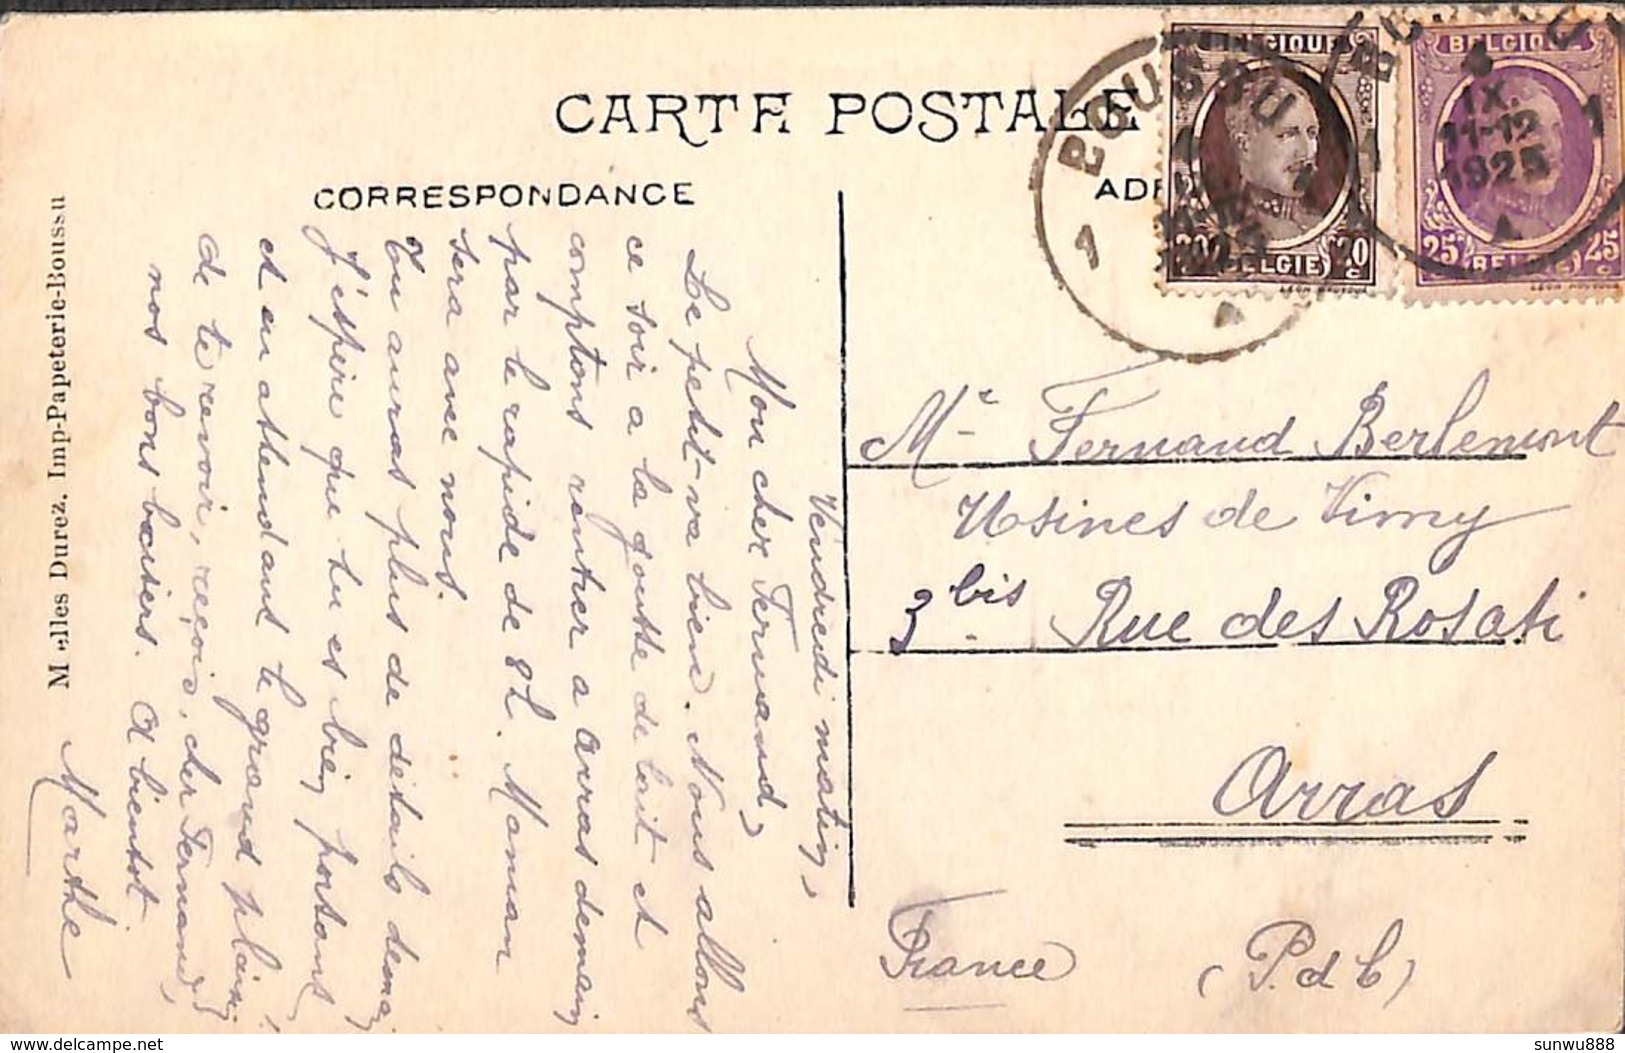 CARTE POSTALE
CORRESPONDANCE
Vendredi matin,
Mon cher Fernand,
Le petit va bien. Nous allons
ce soir a la goutte de lait et
comptons rentrer a Arras demain
par le rapide de 8h. Maman
sera avec nous.
Tu auras plus de détails demain
J'espère que tu es bien portant
et en attendant le grand plaisir
de te revoir, reçois, cher Fernand,
nos bons baisers. A bientot
Marthe
Melles Durez. Imp-Papeterie-Boussu
BELGIQUE
20 20
BELGIE
BELGIQUE
25 25
BELGIE
BOUSSU
1 1
IX.
11-12
1925
Mr Fernand Berlemont
Usines de Vimy
3bis Rue des Rosati
Arras
France (P. d C)
sunwu888